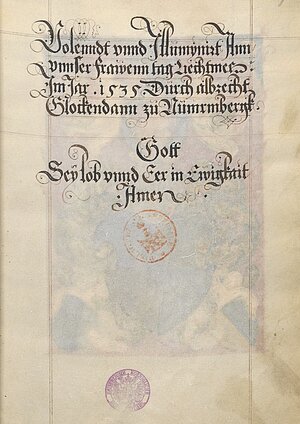 Volenndt vnnd Jllumynirt Ann
vnnser Frawenn tag Liechtmes:
Im Jar .1535. Dürch albrecht
Glockendann zu Nürmberg.
Gott
Sey lob vnnd Eer in Ewigkait
Amen